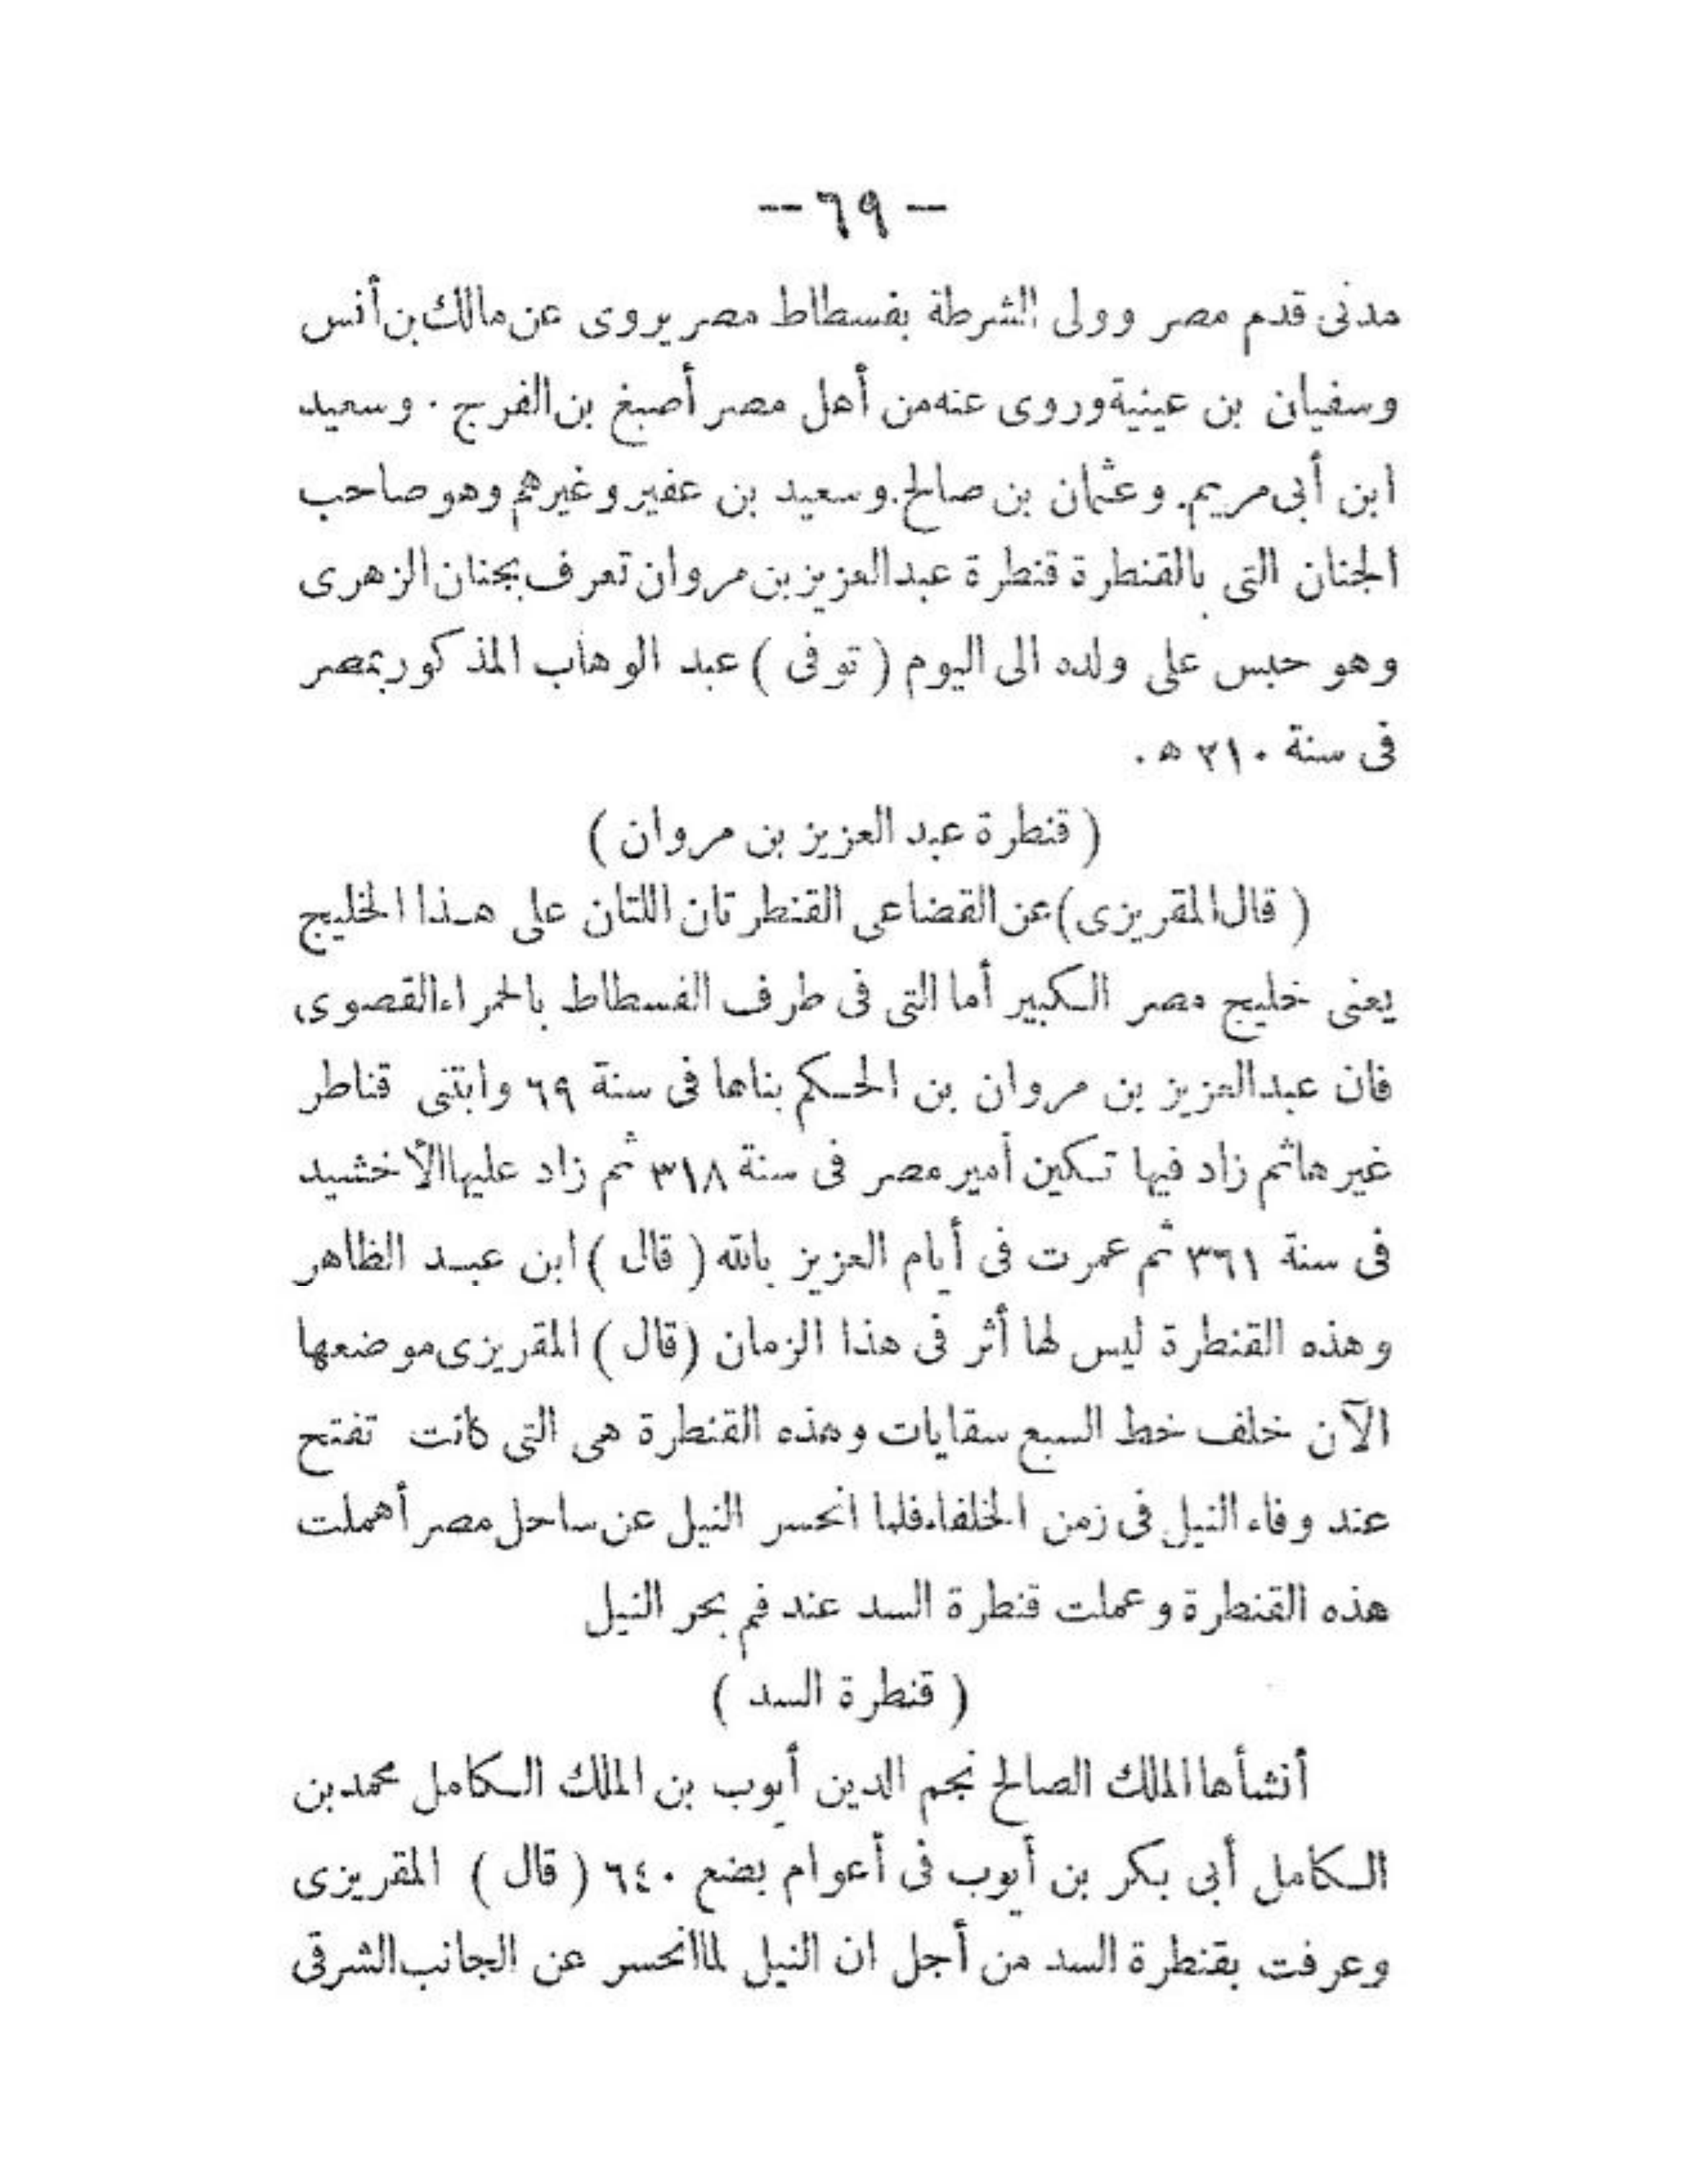 — ٦٩ —
مدنى قدم مصر وولى الشرطة بفسطاط مصر يروى عن مالك بن أنس
وسفيان بن عينية وروى عنه من أهل مصر أصبغ بن الفرج . وسعيد
ابن أبى مريم . وعثمان بن صالح . وسعيد بن عفير وغيرهم وهو صاحب
الجنان التى بالقنطرة قنطرة عبد العزيز بن مروان تعرف بجنان الزهرى
وهو حبس على ولده الى اليوم ( توفى ) عبد الوهاب المذكور بمصر
فى سنة ٢١٠ ه .
( قنطرة عبد العزيز بن مروان )
( قال المقريزى ) عن القضاعى القنطرتان اللتان على هذا الخليج
يعنى خليج مصر الكبير أما التى فى طرف الفسطاط بالحمراء القصوى
فان عبد العزيز بن مروان بن الحكم بناها فى سنة ٦٩ وابتنى قناطر
غيرها ثم زاد فيها تكين أمير مصر فى سنة ٣١٨ ثم زاد عليها الأخشيد
فى سنة ٣٦١ ثم عمرت فى أيام العزيز بالله ( قال ) ابن عبد الظاهر
وهذه القنطرة ليس لها أثر فى هذا الزمان ( قال ) المقريزى موضعها
الآن خلف خط السبع سقايات وهذه القنطرة هى التى كانت تفتح
عند وفاء النيل فى زمن الخلفاء فلما انحسر النيل عن ساحل مصر أهملت
هذه القنطرة وعملت قنطرة السد عند فم بحر النيل
( قنطرة السد )
أنشأها الملك الصالح نجم الدين أيوب بن الملك الكامل محمد بن
الكامل أبى بكر بن أيوب فى أعوام بضع ٦٤٠ ( قال ) المقريزى
وعرفت بقنطرة السد من أجل ان النيل لما انحسر عن الجانب الشرقى